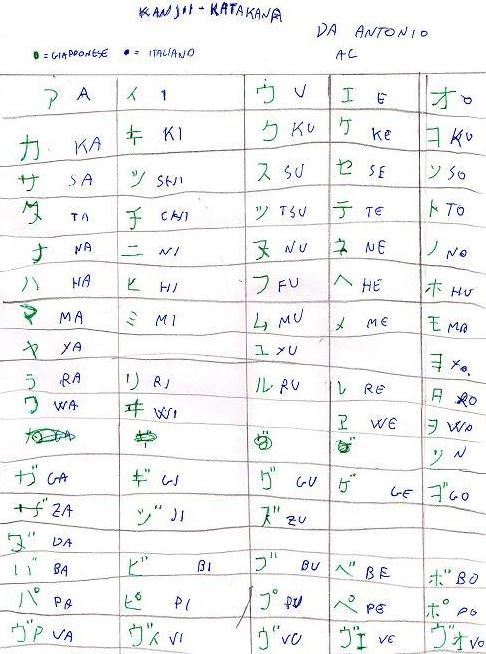 KANJII - KATAKANA
DA ANTONIO
• = GIAPPONESE • = ITALIANO AL
ア A イ I ウ U エ E オ O
カ KA キ KI ク KU ケ KE ヨ KU
サ SA ツ SHI ス SU セ SE ソ SO
タ TA チ CHI ツ TSU テ TE ト TO
ナ NA ニ NI ヌ NU ネ NE ノ NO
ハ HA ヒ HI フ FU ヘ HE ホ HU
マ MA ミ MI ム MU メ ME モ MA
ヤ YA ユ YU ヨ YO
ラ RA リ RI ル RU レ RE RO
ワ WA ヰ WI ヱ WE ヲ WO
ン N
ガ GA ギ GI グ GU ゲ GE GO
ザ ZA ジ JI ズ ZU
ダ DA
バ BA ビ BI ブ BU ベ BE ボ BO
パ PA ピ PI プ PU ペ PE ポ PO
VA ヴィ VI ヴ VU ヴエ VE ヴォ VO